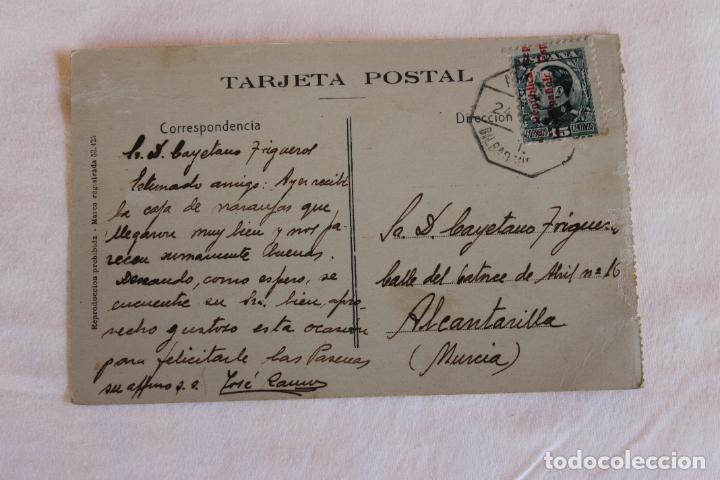 TARJETA POSTAL
Correspondencia
Sr. D. Cayetano Trigueros
Estimado amigo: Ayer recibí
la caja de naranjas que
llegaron muy bien y nos pa-
recen sumamente buenas.
Deseando, como espero, se
encuentre su Sra. bien, apro-
vecho gustoso esta ocasión
para felicitarle las Pascuas
su affmo s.s. José Ramos
Direccion
Sr. D. Cayetano Trigueros
Calle del Catorce de Abril nº 16
Alcantarilla
(Murcia)
Reproduccion prohibida - Marca registrada 53.425
República Española
ESPAÑA
15 CENTIMOS
BILBAO
todocoleccion.net